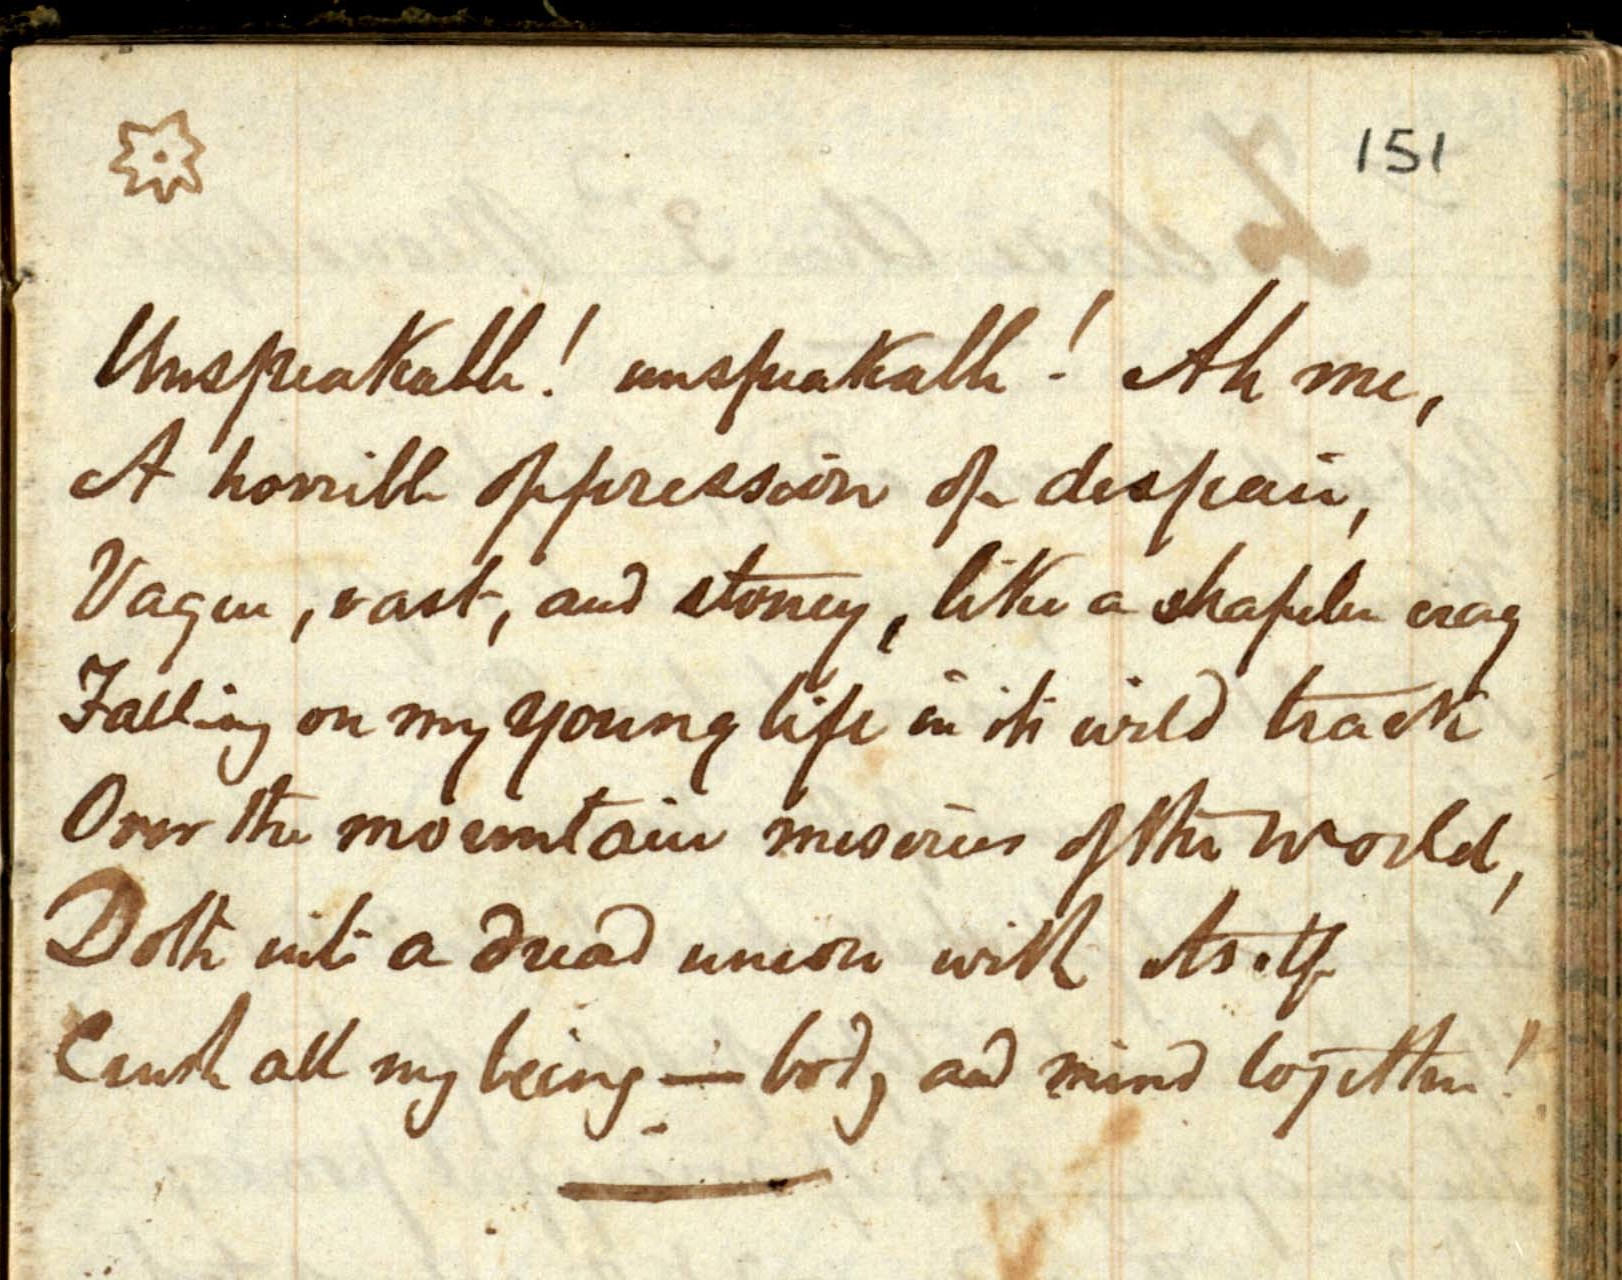 151
Unspeakable! unspeakable! Ah me,
A horrible oppression of despair,
Vague, vast, and stoney, like a shapeless crag
Falling on my young life in its wild track
Over the mountain miseries of the world,
Doth into a dread union with itself
Crush all my being — body and mind together!